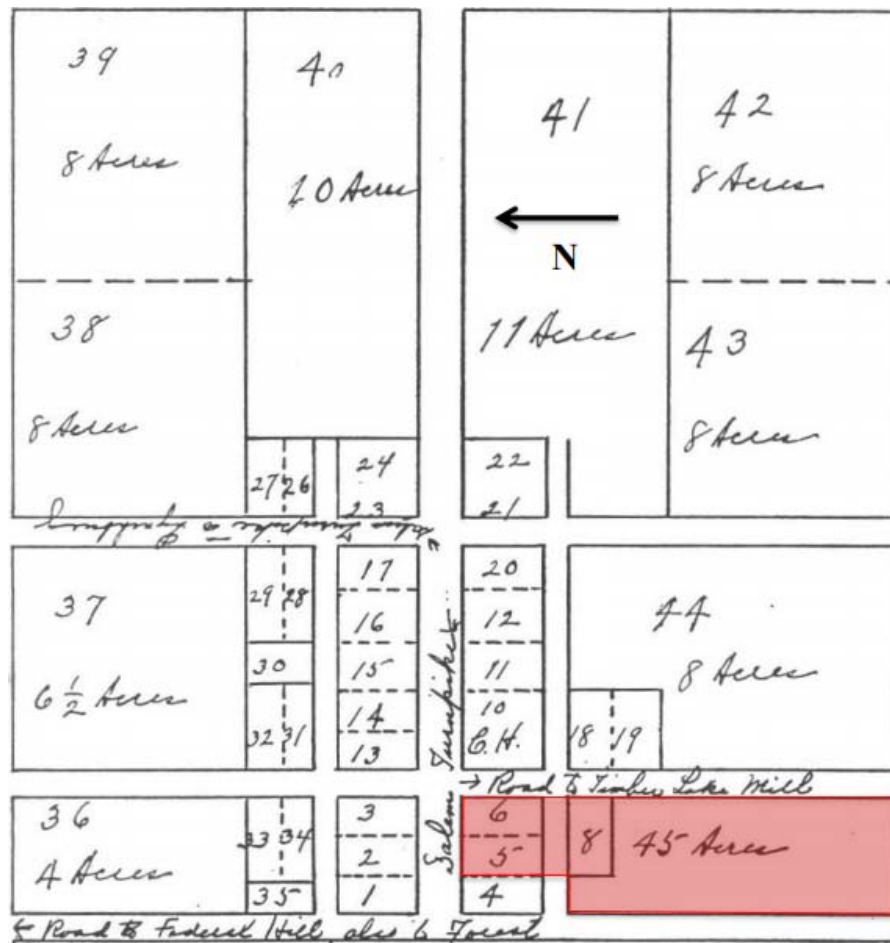 39
8 Acres
40
10 Acres
41
11 Acres
42
8 Acres
N
38
8 Acres
43
8 Acres
27 26
24
23
22
21
Turnpike to Lynchburg
37
6 ½ Acres
29 28
30
32 31
17
16
15
14
13
Salem Turnpike
20
12
11
10
C.H.
44
8 Acres
18 19
→ Road to Timber Lake Mill
36
4 Acres
33 34
35
3
2
1
6
5
4
8
45 Acres
← Road to Federal Hill also to Forest